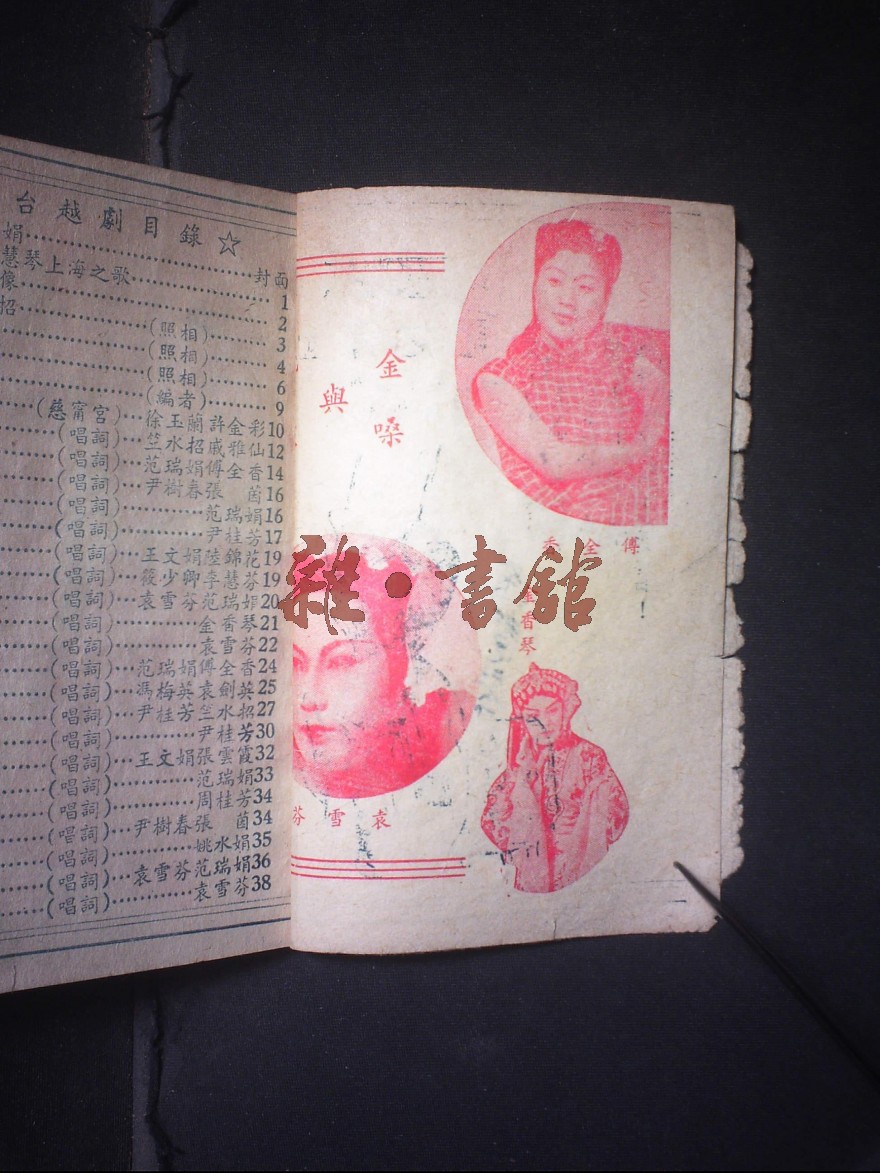 台越劇目錄☆
娟……封面
慧琴上海之歌……1
像……2
招……(照相)……3
(照相)……4
(照相)……6
(編者)……9
(慈甯宮)……徐玉蘭許金彩10
(唱詞)……竺水招戚雅仙12
(唱詞)……范瑞娟傅全香14
(唱詞)……尹樹春張茵16
(唱詞)……范瑞娟16
(唱詞)……尹桂芳17
(唱詞)…王文娟陸錦花19
(唱詞)…筱少卿李慧芬19
(唱詞)…袁雪芬范瑞娟20
(唱詞)……金香琴21
(唱詞)……袁雪芬22
(唱詞)…范瑞娟傅全香24
(唱詞)…馮梅英袁劍英25
(唱詞)…尹桂芳竺水招27
(唱詞)……尹桂芳30
(唱詞)…王文娟張雲霞32
(唱詞)……范瑞娟33
(唱詞)……周桂芳34
(唱詞)…尹樹春張茵34
(唱詞)……姚水娟35
(唱詞)…袁雪芬范瑞娟36
(唱詞)……袁雪芬38
金嗓
與
傅全香
金香琴
袁雪芬
雜·書館